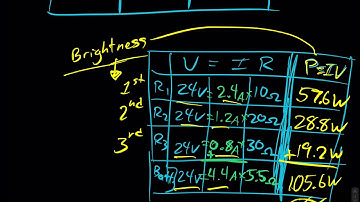 Brightness
V = I R P=IV
1st R1 24V = 2.4A × 10Ω 57.6W
2nd R2 24V = 1.2A × 20Ω 28.8W
3rd R3 24V = 0.8A × 30Ω + 19.2W
24V = 4.4A × 5.5Ω 105.6W